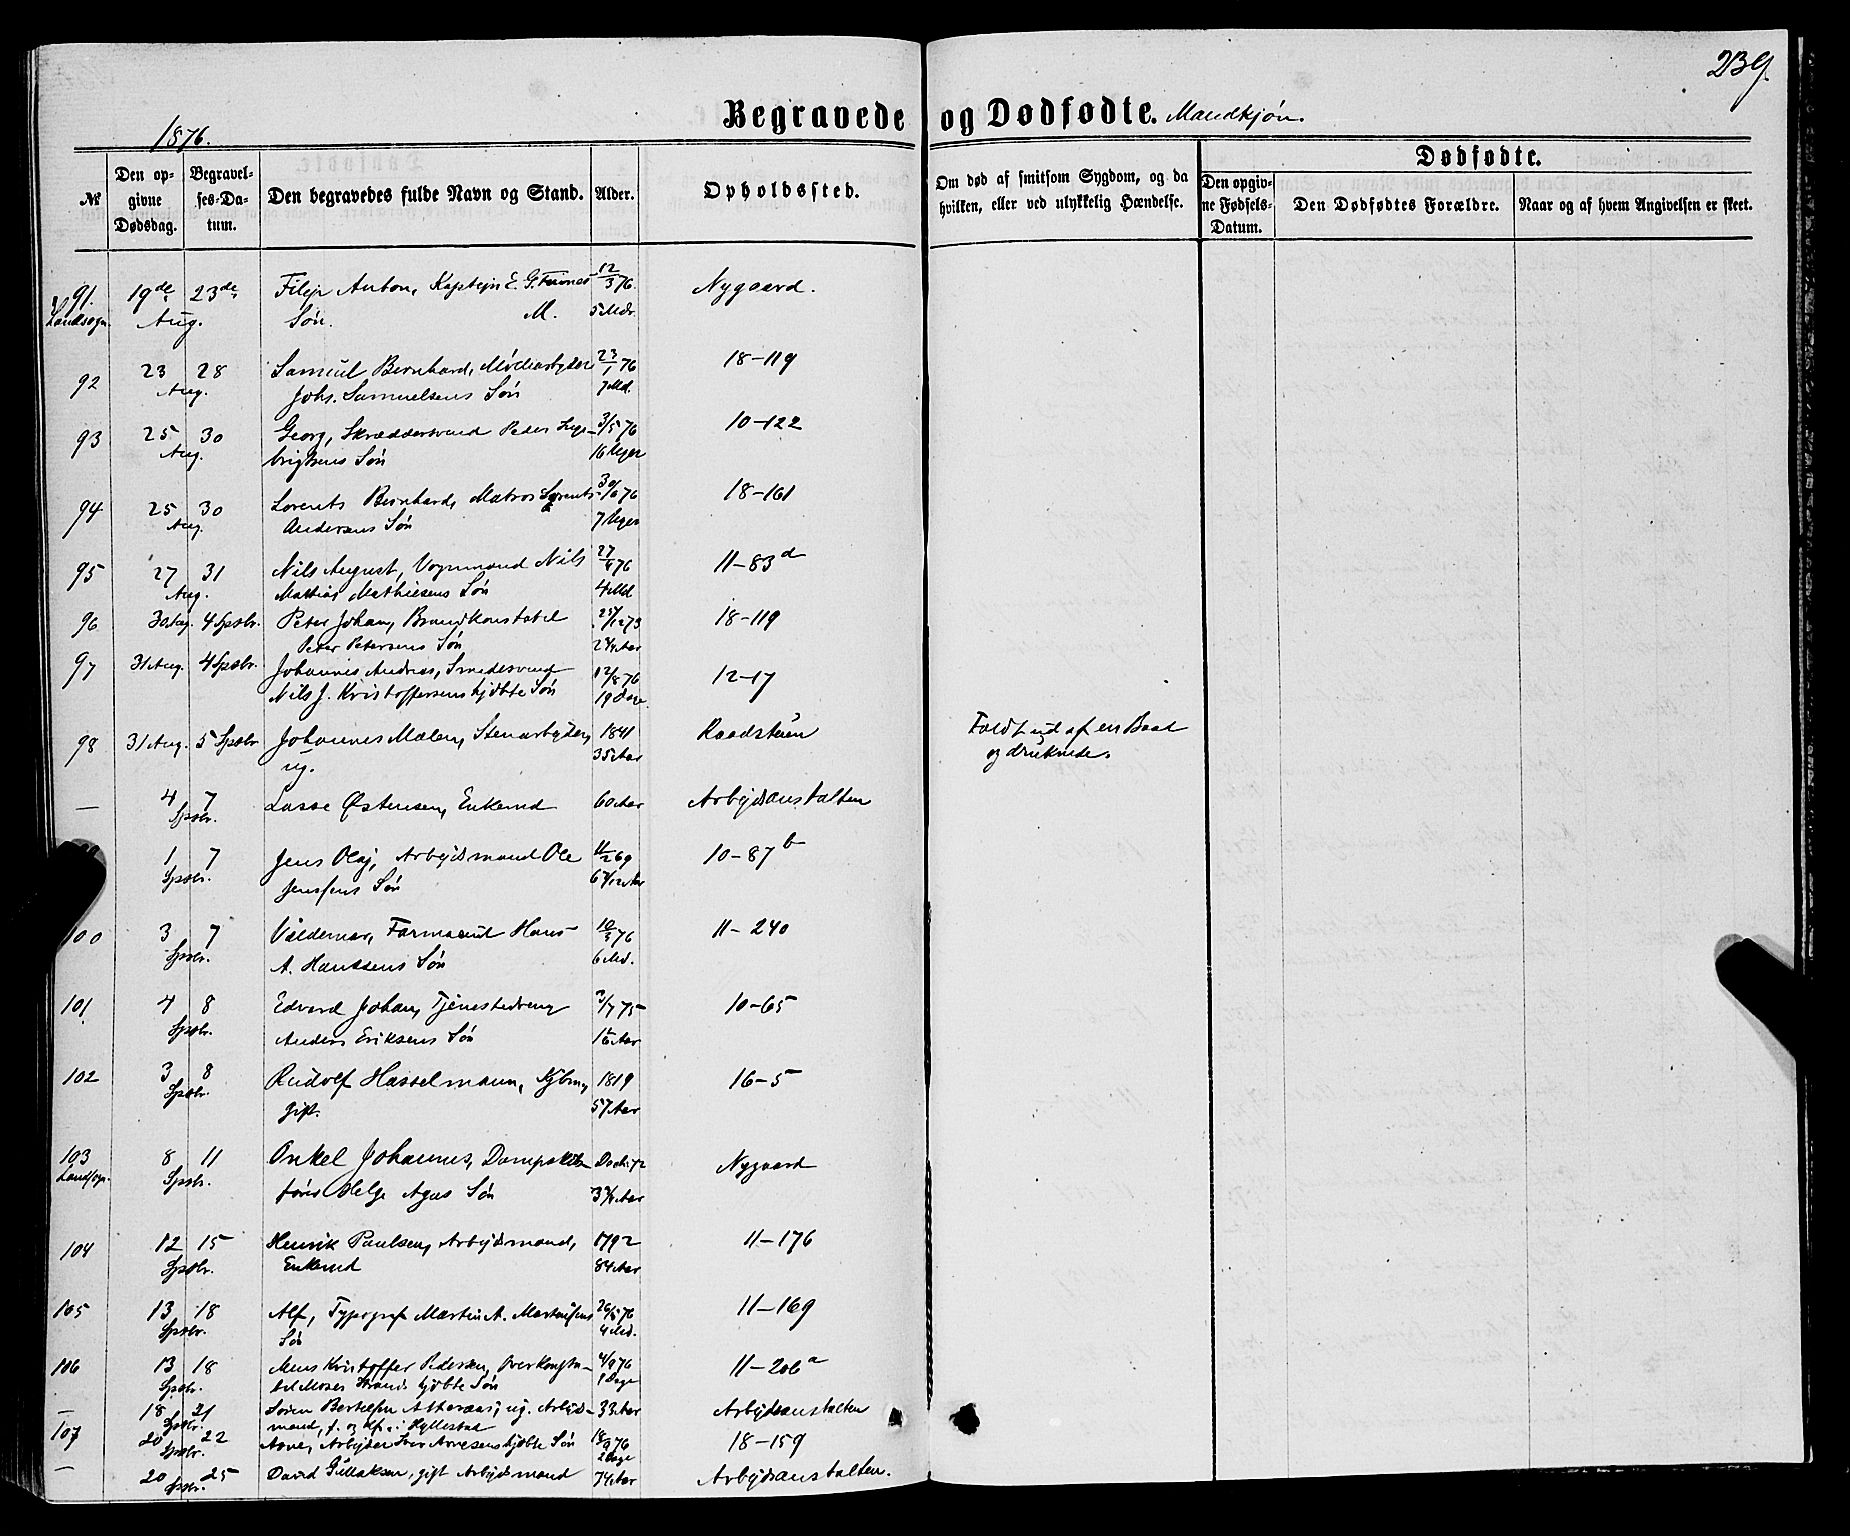 239.
Begravede og Dødfødte. Mandkjøn.
1876.
Dødfødte.
№
Den opgivne Dødsdag.
Begravelses-Datum.
Den begravedes fulde Navn og Stand.
Alder.
Opholdssted.
Om død af smitsom Sygdom, og da hvilken, eller ved ulykkelig Hændelse.
Den opgivne Fødsels-Datum.
Den Dødfødtes Forældre.
Naar og af hvem Angivelsen er skeet.
91. 19de 23de Filip Anton, Kaptejn E. G. 12/3 76 Nygaard.
Landsogn. Aug. Søn. M. 5 Mdr.
92 23 28 Samuel Bernhard, 23/1 76 18-119
Aug. Johs. Samuelsens Søn 7 Md.
93 25 30 Georg, Skræddersvend Peder 3/5 76 10-122
Aug. brigtsens Søn 16 Uger
94 25 30 Lorents Bernhard, Matros Lorents 30/6 76 18-161
Aug. Andersens Søn 7 Uger
95 27 31 Nils August, Vognmand Nils 27/4 76 11-83d
Aug. Mathias Mathiesens Søn 4 Md
96 30 Aug. 4 Spsbr. Peter Johan, Brandkonstabel 25/12 73 18-119
Peter Petersens Søn 2¾ Aar
97 31 Aug. 4 Spsbr. Johannes Andreas, Smedesvend 12/8 76 12-17
Nils J. Kristoffersens hjdbte Søn 19 Dage
98 31 Aug. 5 Spsbr Johannes Malen, Stenarbejder, 1841 Raadstuen Faldt ud af en Baad
ug. 35 Aar og druknede.
— 4 7 Lasse Østensen, Enkemd 60 Aar Arbejdsanstalten
Spsbr.
1 7 Jens Olaj, Arbejdsmand Ole 11/2 69 10-87b
Spsbr. Jensens Søn 6 7/12 Aar
100 3 7 Valdemar, Farmaceut Hans 10/3 76 11-240
Spsbr. A. Hanssens Søn 6 Md.
101 4 8 Edvard Johan, Tjenestedreng 10-65
Spsbr. Anders Eriksens Søn Aar
102 3 8 Rudolf Hasselmann, Kjbm, 1819 16-5
Spsbr. gift. 57 Aar
103 8 11 Onkel Johannes, Nygaard
Landsogn. Spsbr. fører Helge Agas Søn 3¾ Aar
104 12 15 Henrik Paulsen, Arbejdsmand, 1792 11-176
Spsbr. Enkemd 84 Aar
105 13 18 Alf, Typograf Martin A. Martinsens 26/4 76 11-169
Spsbr. Søn 4 Md.
106 13 18 Mens Kristoffer Pedersen, Overkonsta- 4/9 76 11-206a
Spsbr. bel Moses Strands hjdbte Søn 9 Dage
— 18 21 Søren Bertelsen ug. Arbejds- 33 Aar Arbejdsanstalten
Spsbr. mand, f. og kf. i Hyllestad
107 20 22 Arne, Arbejder Iver Arnesens hjdbte Søn 18/9 76 18-159
Spsbr. 2 Dage
— 20 25 David Gullaksen, gift Arbejdsmand 74 Aar Arbejdsanstalten.
Spsbr.